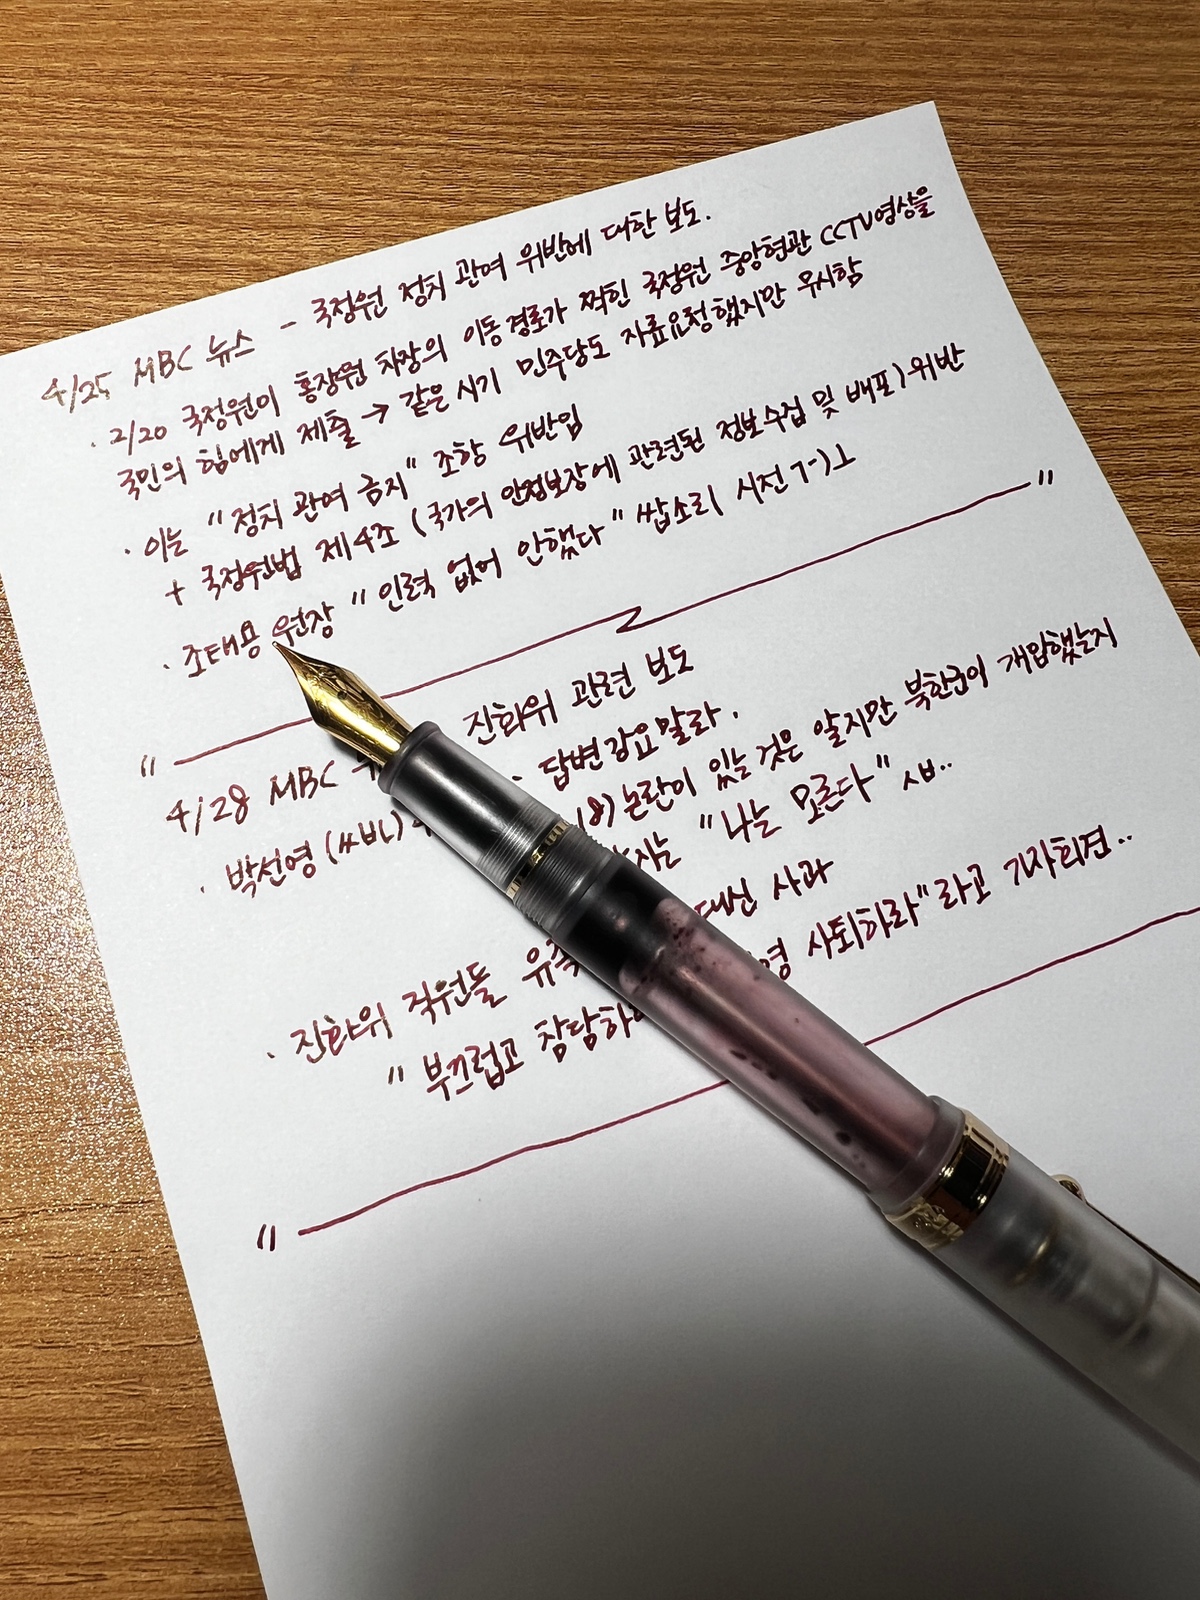 4/25 MBC 뉴스 - 국정원 정치 관여 위반에 대한 보도.
· 2/20 국정원이 홍장원 차장의 이동경로가 찍힌 국정원 중앙현관 CCTV영상을
국민의 힘에게 제출 → 같은 시기 민주당도 자료요청했지만 무시함
· 이는 "정치 관여 금지" 조항 위반임
+ 국정원법 제4조 (국가의 안전보장에 관련된 정보수집 및 배포) 위반
· 조태용 원장 "인력 없어 안했다" 쌉소리 시전
" "
4/28 MBC 진화위 관련 보도
· 박선영 (ㅆㅂㄴ) · 답변강요말라.
18) 논란이 있는 것은 알지만 북한군이 개입했는지
"나는 모른다" ㅅㅂ..
· 진화위 직원들 대신 사과
"부끄럽고 참담하 사퇴하라"라고 기자회견..
"